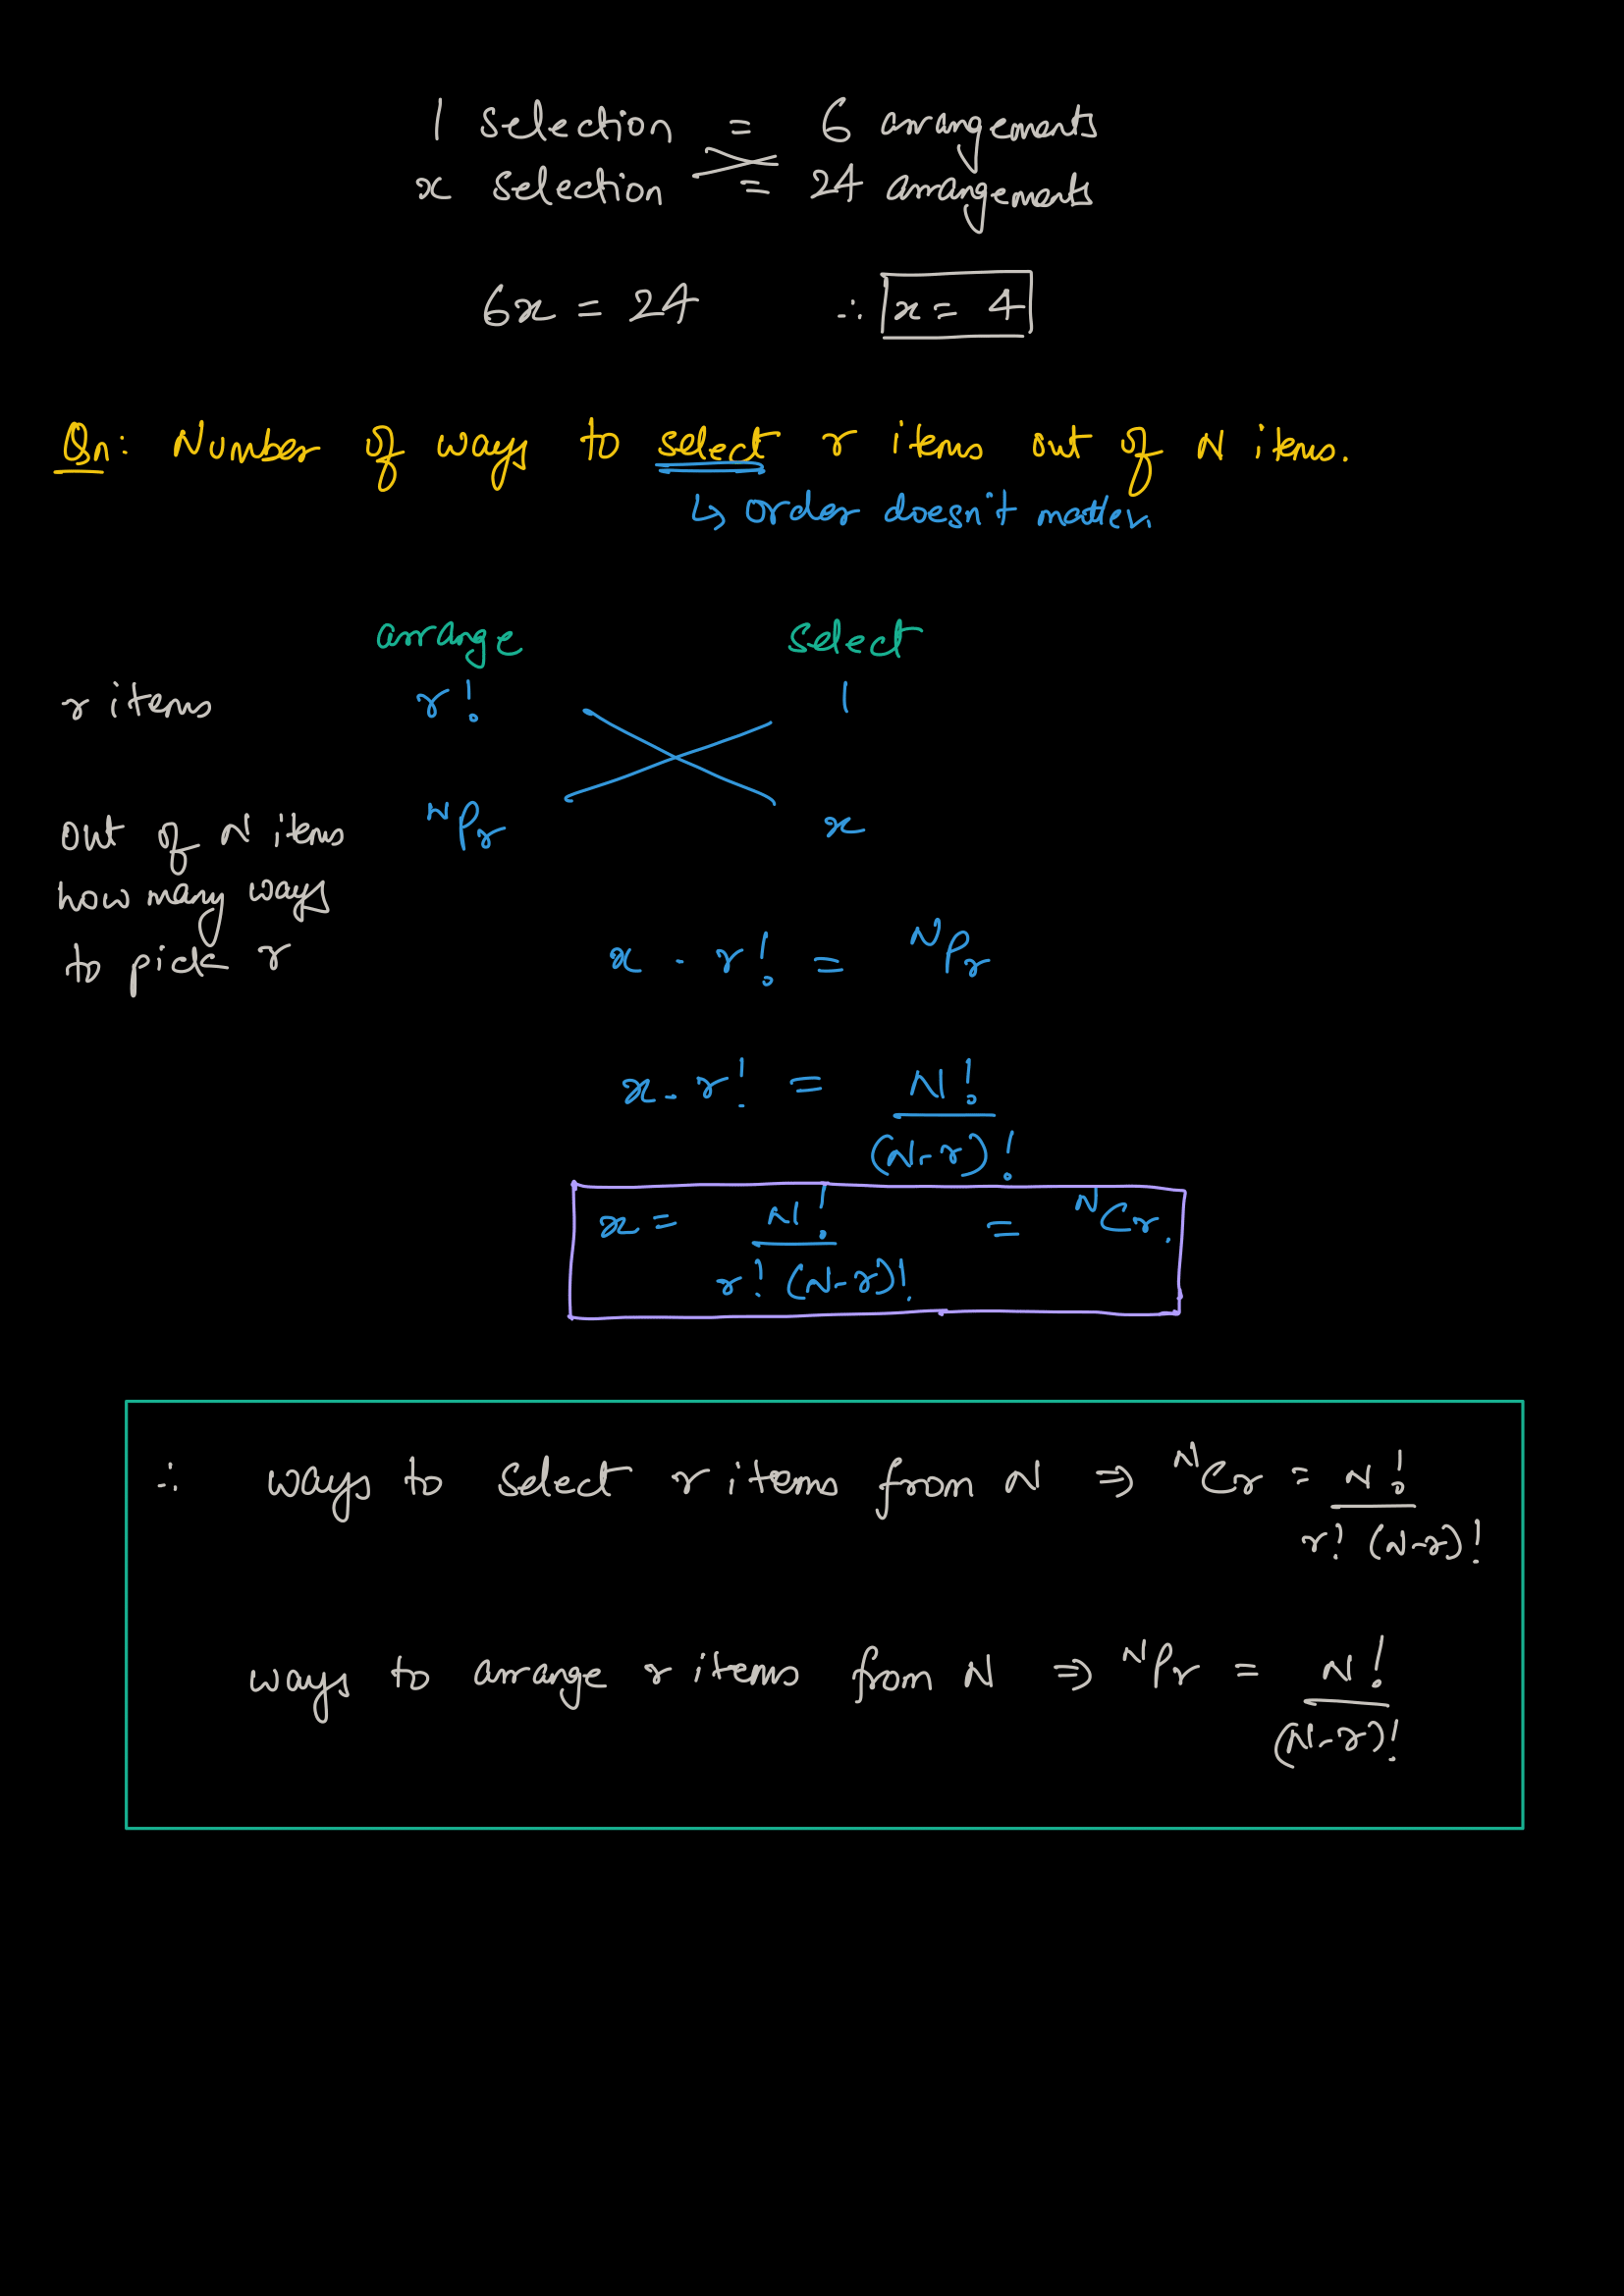 1 selection = 6 arrangements
x selection = 24 arrangements
6x = 24 ∴ x = 4
Qn: Number of ways to select r items out of N items.
↳ order doesn't matter.
arrange select
r items r! 1
out of N items ᴺPr x
how many ways
to pick r
x · r! = ᴺPr
x · r! = N! / (N-r)!
x = N! / r! (N-r)! = ᴺCr.
∴ ways to select r items from N ⇒ ᴺCr = N! / r! (N-r)!
ways to arrange r items from N ⇒ ᴺPr = N! / (N-r)!